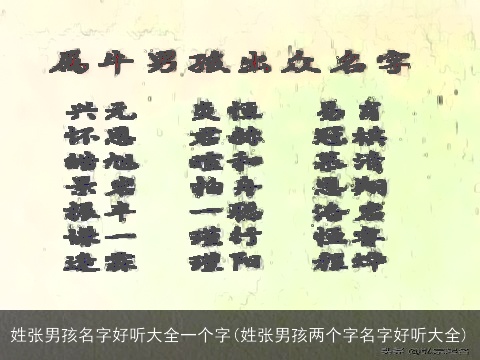 属牛男孩出众名字
兴元 奕恒 易育
怀恩 君 冠棋
皓旭 暄和 慕清
景 柏舟 思翔
振斗 一聪
谋一 瑾行 恒睿
逢霖 瑾阳 程烨
姓张男孩名字好听大全一个字(姓张男孩两个字名字好听大全)